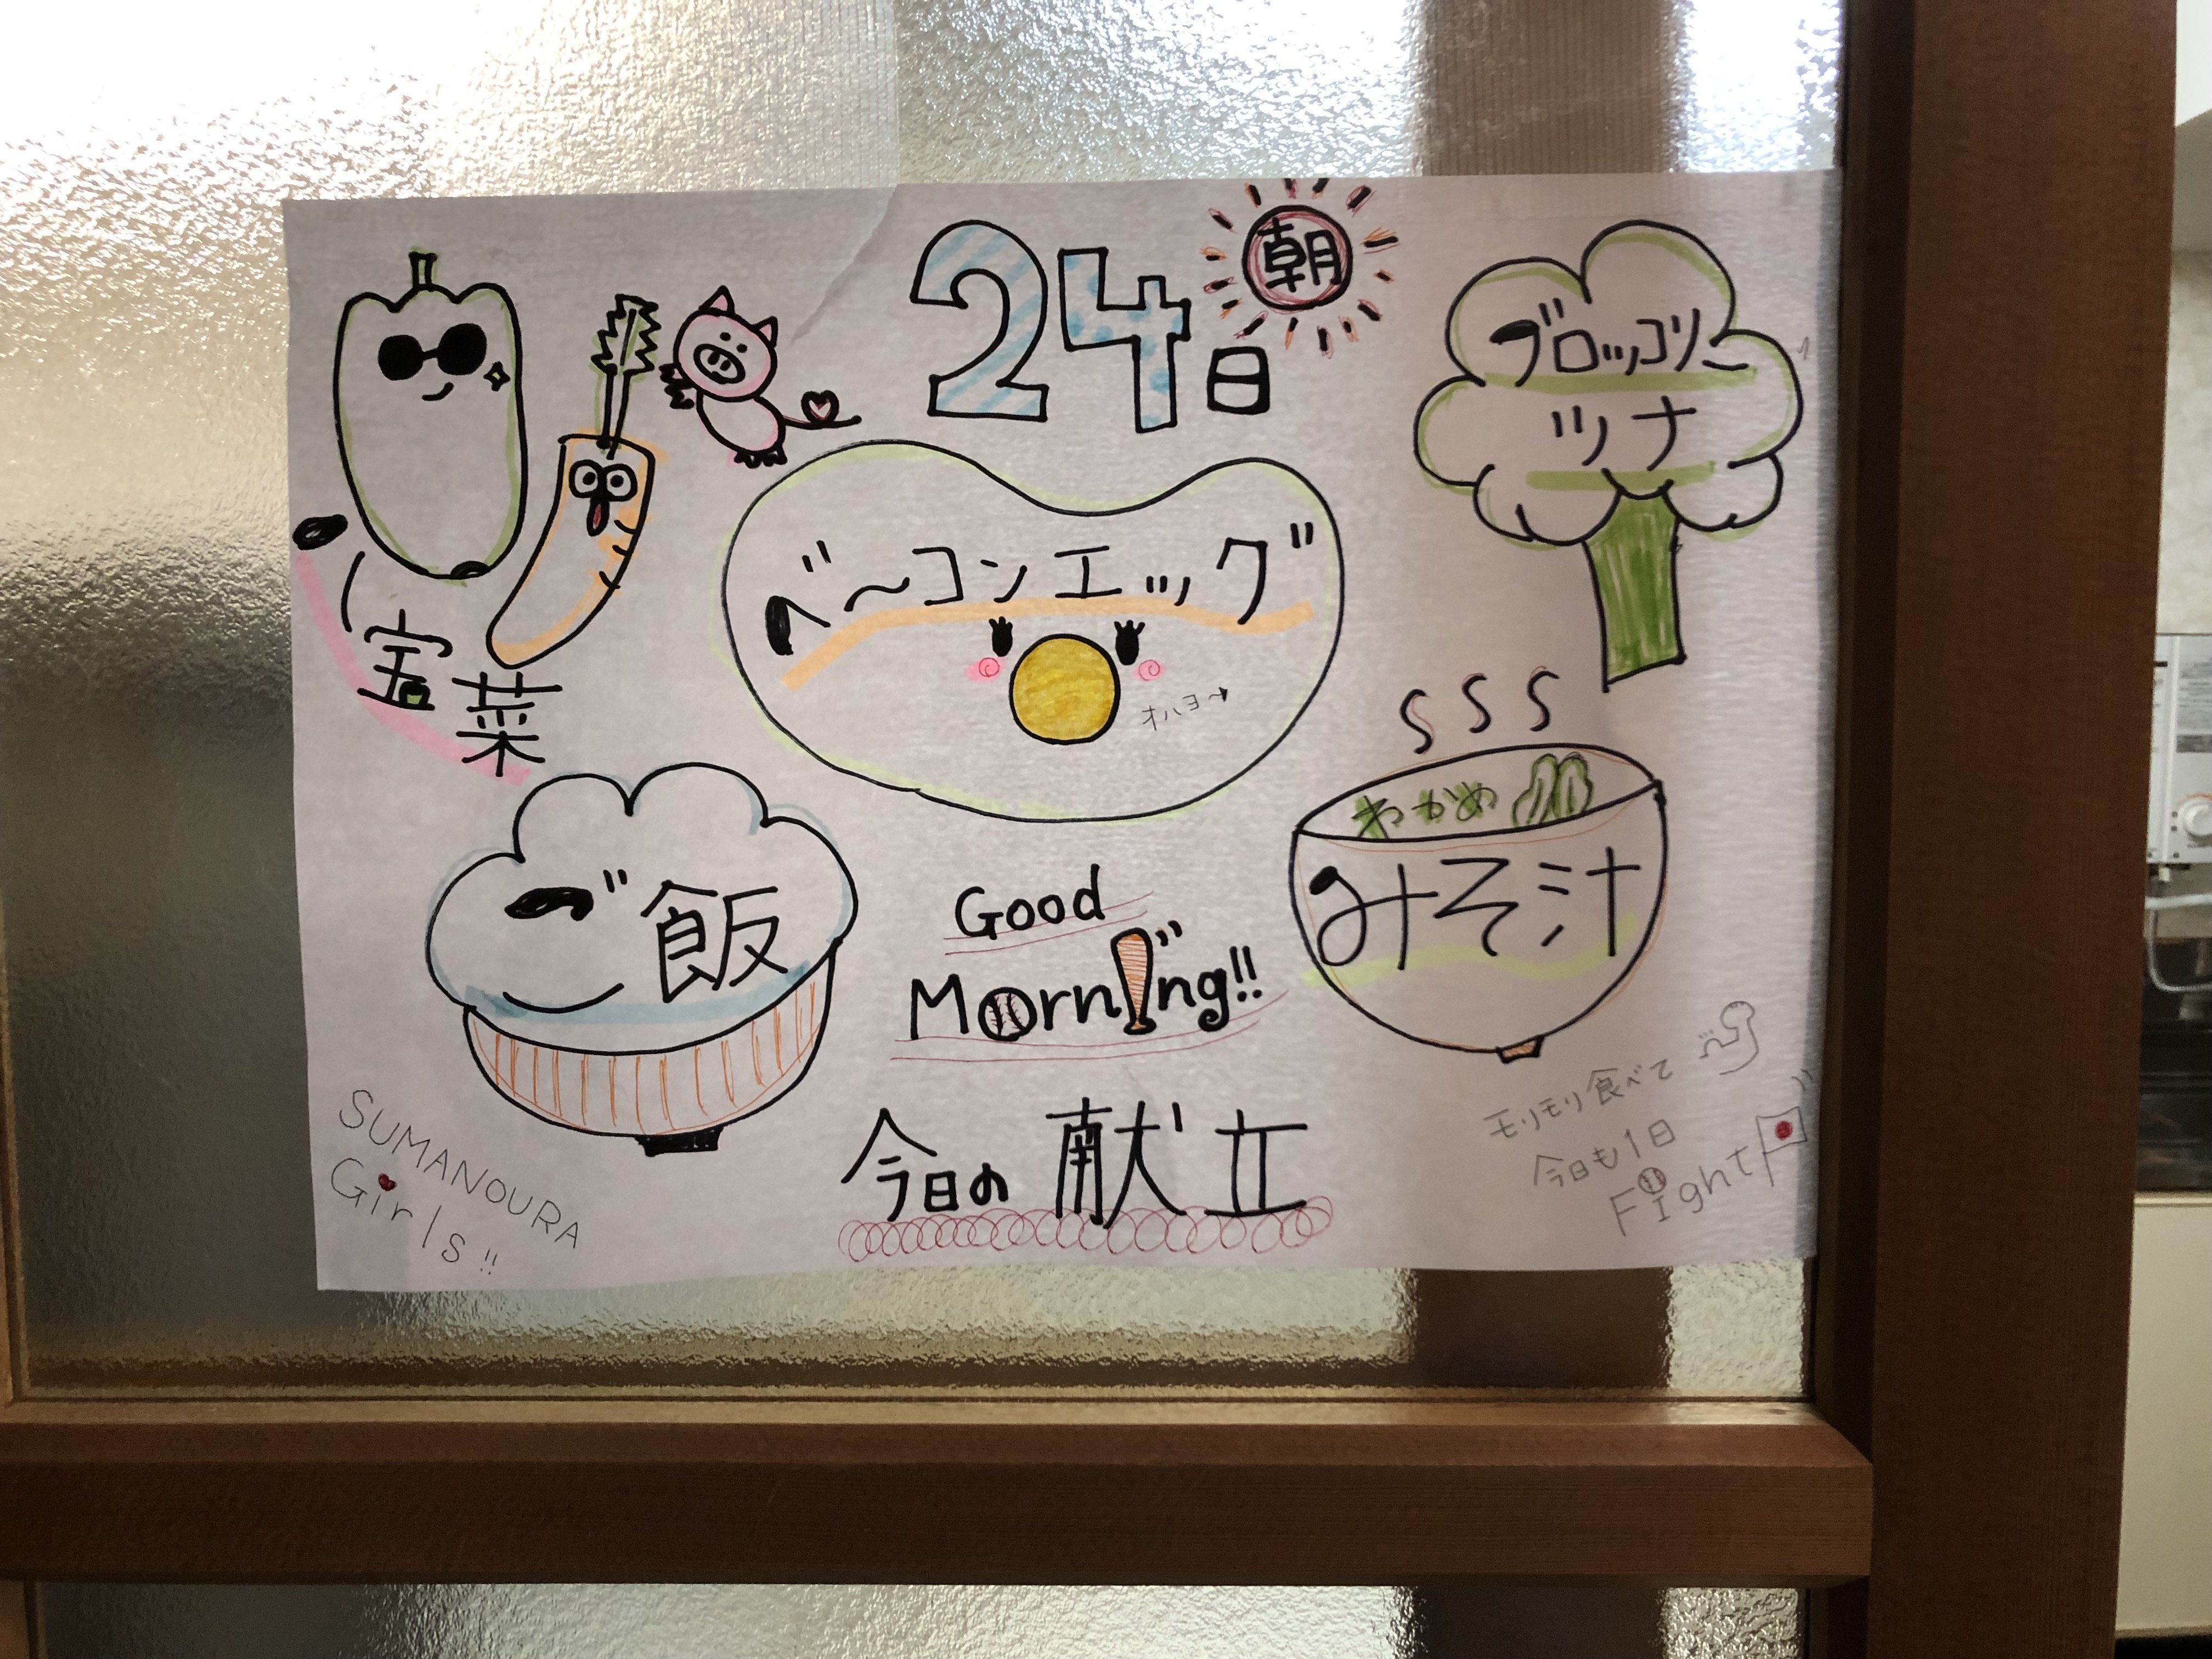 24日
朝
ブロッコリー
ツナ
八宝菜
ベーコンエッグ
オハヨ〜
ご飯
わかめ
みそ汁
Good
Morning!!
今日の献立
SUMANOURA
Girls!!
モリモリ食べて
今日も1日
Fight